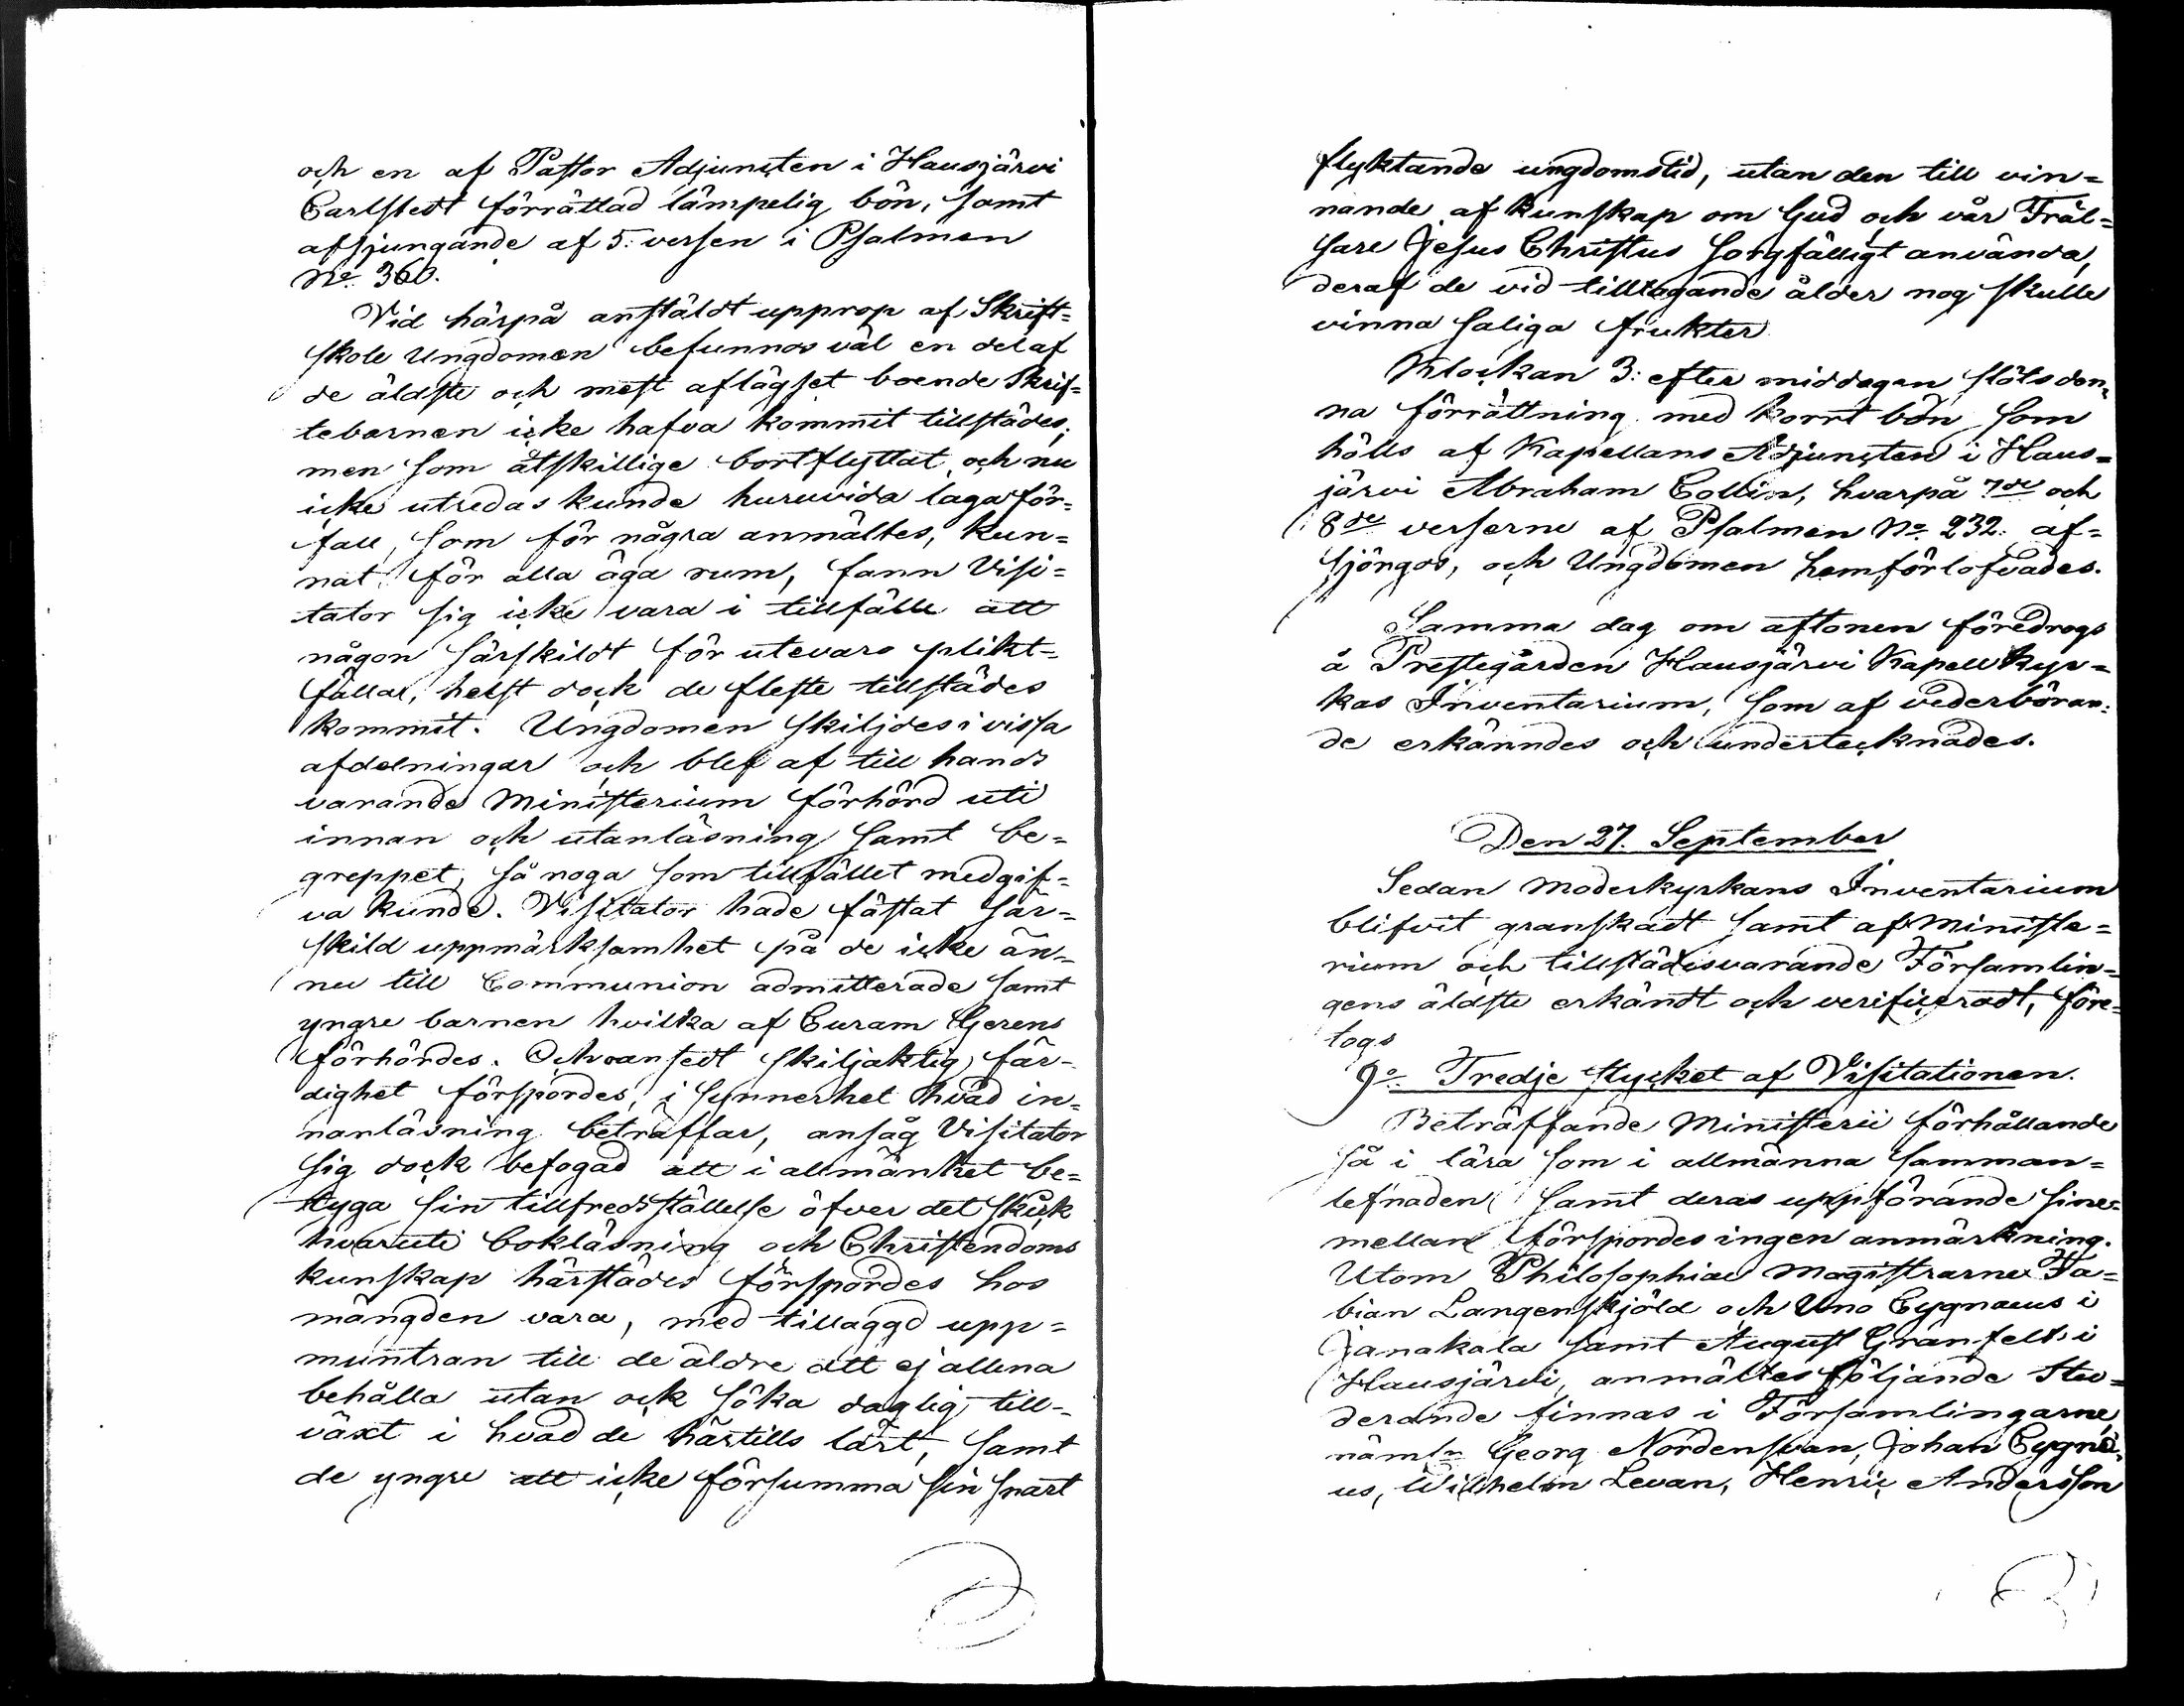 och en af Pastor Adjuncten i Hausjärvi
Carlstedt förrättad lämpelig bön, samt
afsjungande af 5: versen i Psalmen
No. 360.
Vid härpå anstäldt upprop af Skrift=
skole Ungdomen befunnos väl en del af
de äldste och mest aflägset boende Skrif=
tebarnen icke hafva kommit tillstädes;
men som åtskillige bortflyttat, och nu
icke utredas kunde huruvida laga för=
fall, som för några anmältes, kun=
nat för alla äga rum, fann Visi=
tator sig icke vara i tillfälle att
någon särskildt för utevaro plikt=
fälla, helst dock de fleste tillstädes
kommit. Ungdomen skiljdes i vissa
afdelningar och blef af till hands
varande Ministerium förhörd uti
innan och utanläsning samt be=
greppet, så noga som tillfället medgif=
va kunde. Visitator hade fästat sär=
skild uppmärksamhet på de icke än=
nu till Communion admitterade samt
yngre barnen hvilka af Curam Gerens
förhördes. Och oansedt skiljaktig fär-
dighet förspordes, i synnerhet hvad in=
nanläsning beträffar, ansåg Visitator
sig dock befogad att i allmänhet be=
tyga sin tillfredsställelse öfver det skick
hvaruti bokläsning och Christendoms
kunskap härstädes förspordes hos
mängden vara, med tillaggd upp=
muntran till de äldre att ej allena
behålla utan ock söka daglig till-
växt i hvad de härtills lärt, samt
de yngre att icke försumma sin snart
flyktande ungdomstid, utan den till vin=
nande af kunskap om Gud och vår Fräl=
sare Jesus Christus sorgfälligt använda,
deraf de vid tilltagande ålder nog skulle
vinna saliga frukter
Klockan 3: efter middagen slöts den=
na förrättning med korrt bön som
hölls af Kapellans Adjuncten i Haus=
järvi Abraham Collin, hvarpå 7de och
8de verserne af Psalmen No. 232. af=
sjöngos, och Ungdomen hemförlofvades.
Samma dag om aftonen föredrogs
å Prestegården Hausjärvi Kapell kyr=
kas Inventarium, som af vederböran=
de erkänndes och undertecknades.
Den 27. September
Sedan Moderkyrkans Inventarium
blifvit granskadt samt af Ministe=
rium och tillstädesvarande Församlin=
gens äldste erkändt och verificeradt, före=
togs
9o. Tredje stycket af Visitationen.
Beträffande Ministerii förhållande
så i lära som i allmänna samman=
lefnaden samt deras uppförande sine=
mellan förspordes ingen anmärkning.
Utom Philosophiae Magistrarne Fa=
bian Langenskjöld och Uno Cygnaeus i
Janakala samt August Granfelt i
Hausjärvi, anmältes följande Stu=
derande finnas i Församlingarne,
näml. Georg Nordensvan, Johan Cygnæ=
us, Wilhelm Levan, Henric Andersson